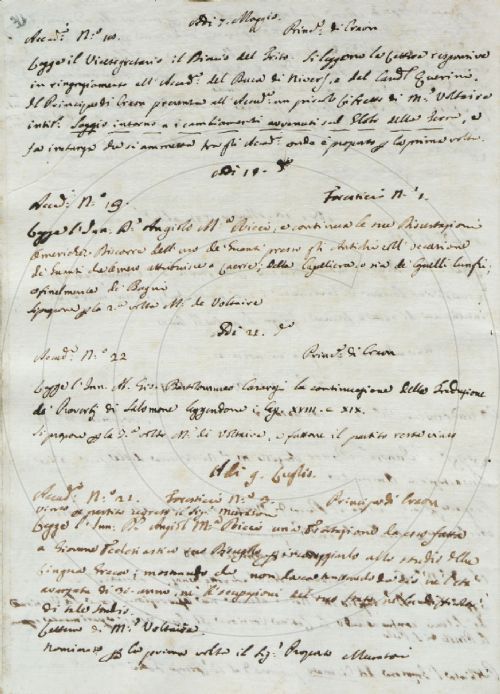 Adi 7. Maggio.
Accad.i N.o 20. Princ.e di Craon
Legge il Vicesegretario il Principio del . Si leggono le Lettere responsive
in ringraziamento all'Accad.a del Duca di Nivers, e del Card.l Querini.
Il Principe di Craon presenta all'Accad.a un piccolo Libretto di M.r Voltaire
intit. Saggio intorno a i cambiamenti avvenuti sul Globo della Terra, e
fa instanza che si ammetta tra gli Accad.i onde è proposto p la prima volta.
Adi 14. d.o
Accad.i N.o 19. Forestieri N.o 1.
Legge l'Inn. D.r Angiolo M.a Ricci, e continua le sue Dissertazioni
Omeriche: Discorre dell'uso de Guanti presso gli Antichi coll'occasione
de Guanti da Omero attribuiti a Laerte; della Capelliera o sia de Capelli lunghi;
e finalmente de Bagni
Si propone p la 2.a volta M.r de Voltaire
Adi 21. d.o
Accad.i N.o 22 Princ.e di Craon
Legge l'Inn. Ab. Gio: Bartolommeo Casaregi la continuazione della Traduzione
de Proverbj di Salomone leggendone i Cap. XVIII. e XIX.
Si propone p la 3.a volta M.r di Voltaire, e fattone il partito resta vinto
Adi 9. Luglio.
Accad.i N.o 21. Forestieri N.o 3. Principe di Craon
vinto partito il Sig.r Muratori
Legge l'Inn. D.r Angiol M.a Ricci una Esortazione da esso fatta
a Giovane Ecclesiastico suo p incoraggiarlo allo studio della
Lingua Greca; mostrando che non da ciò l'età
avanzata di 30. anno, ne l'occupazioni del suo stato
di tale studio.
Lettera di M.r Voltaire.
Nominato p la prima volta il Sig.r Proposto Muratori